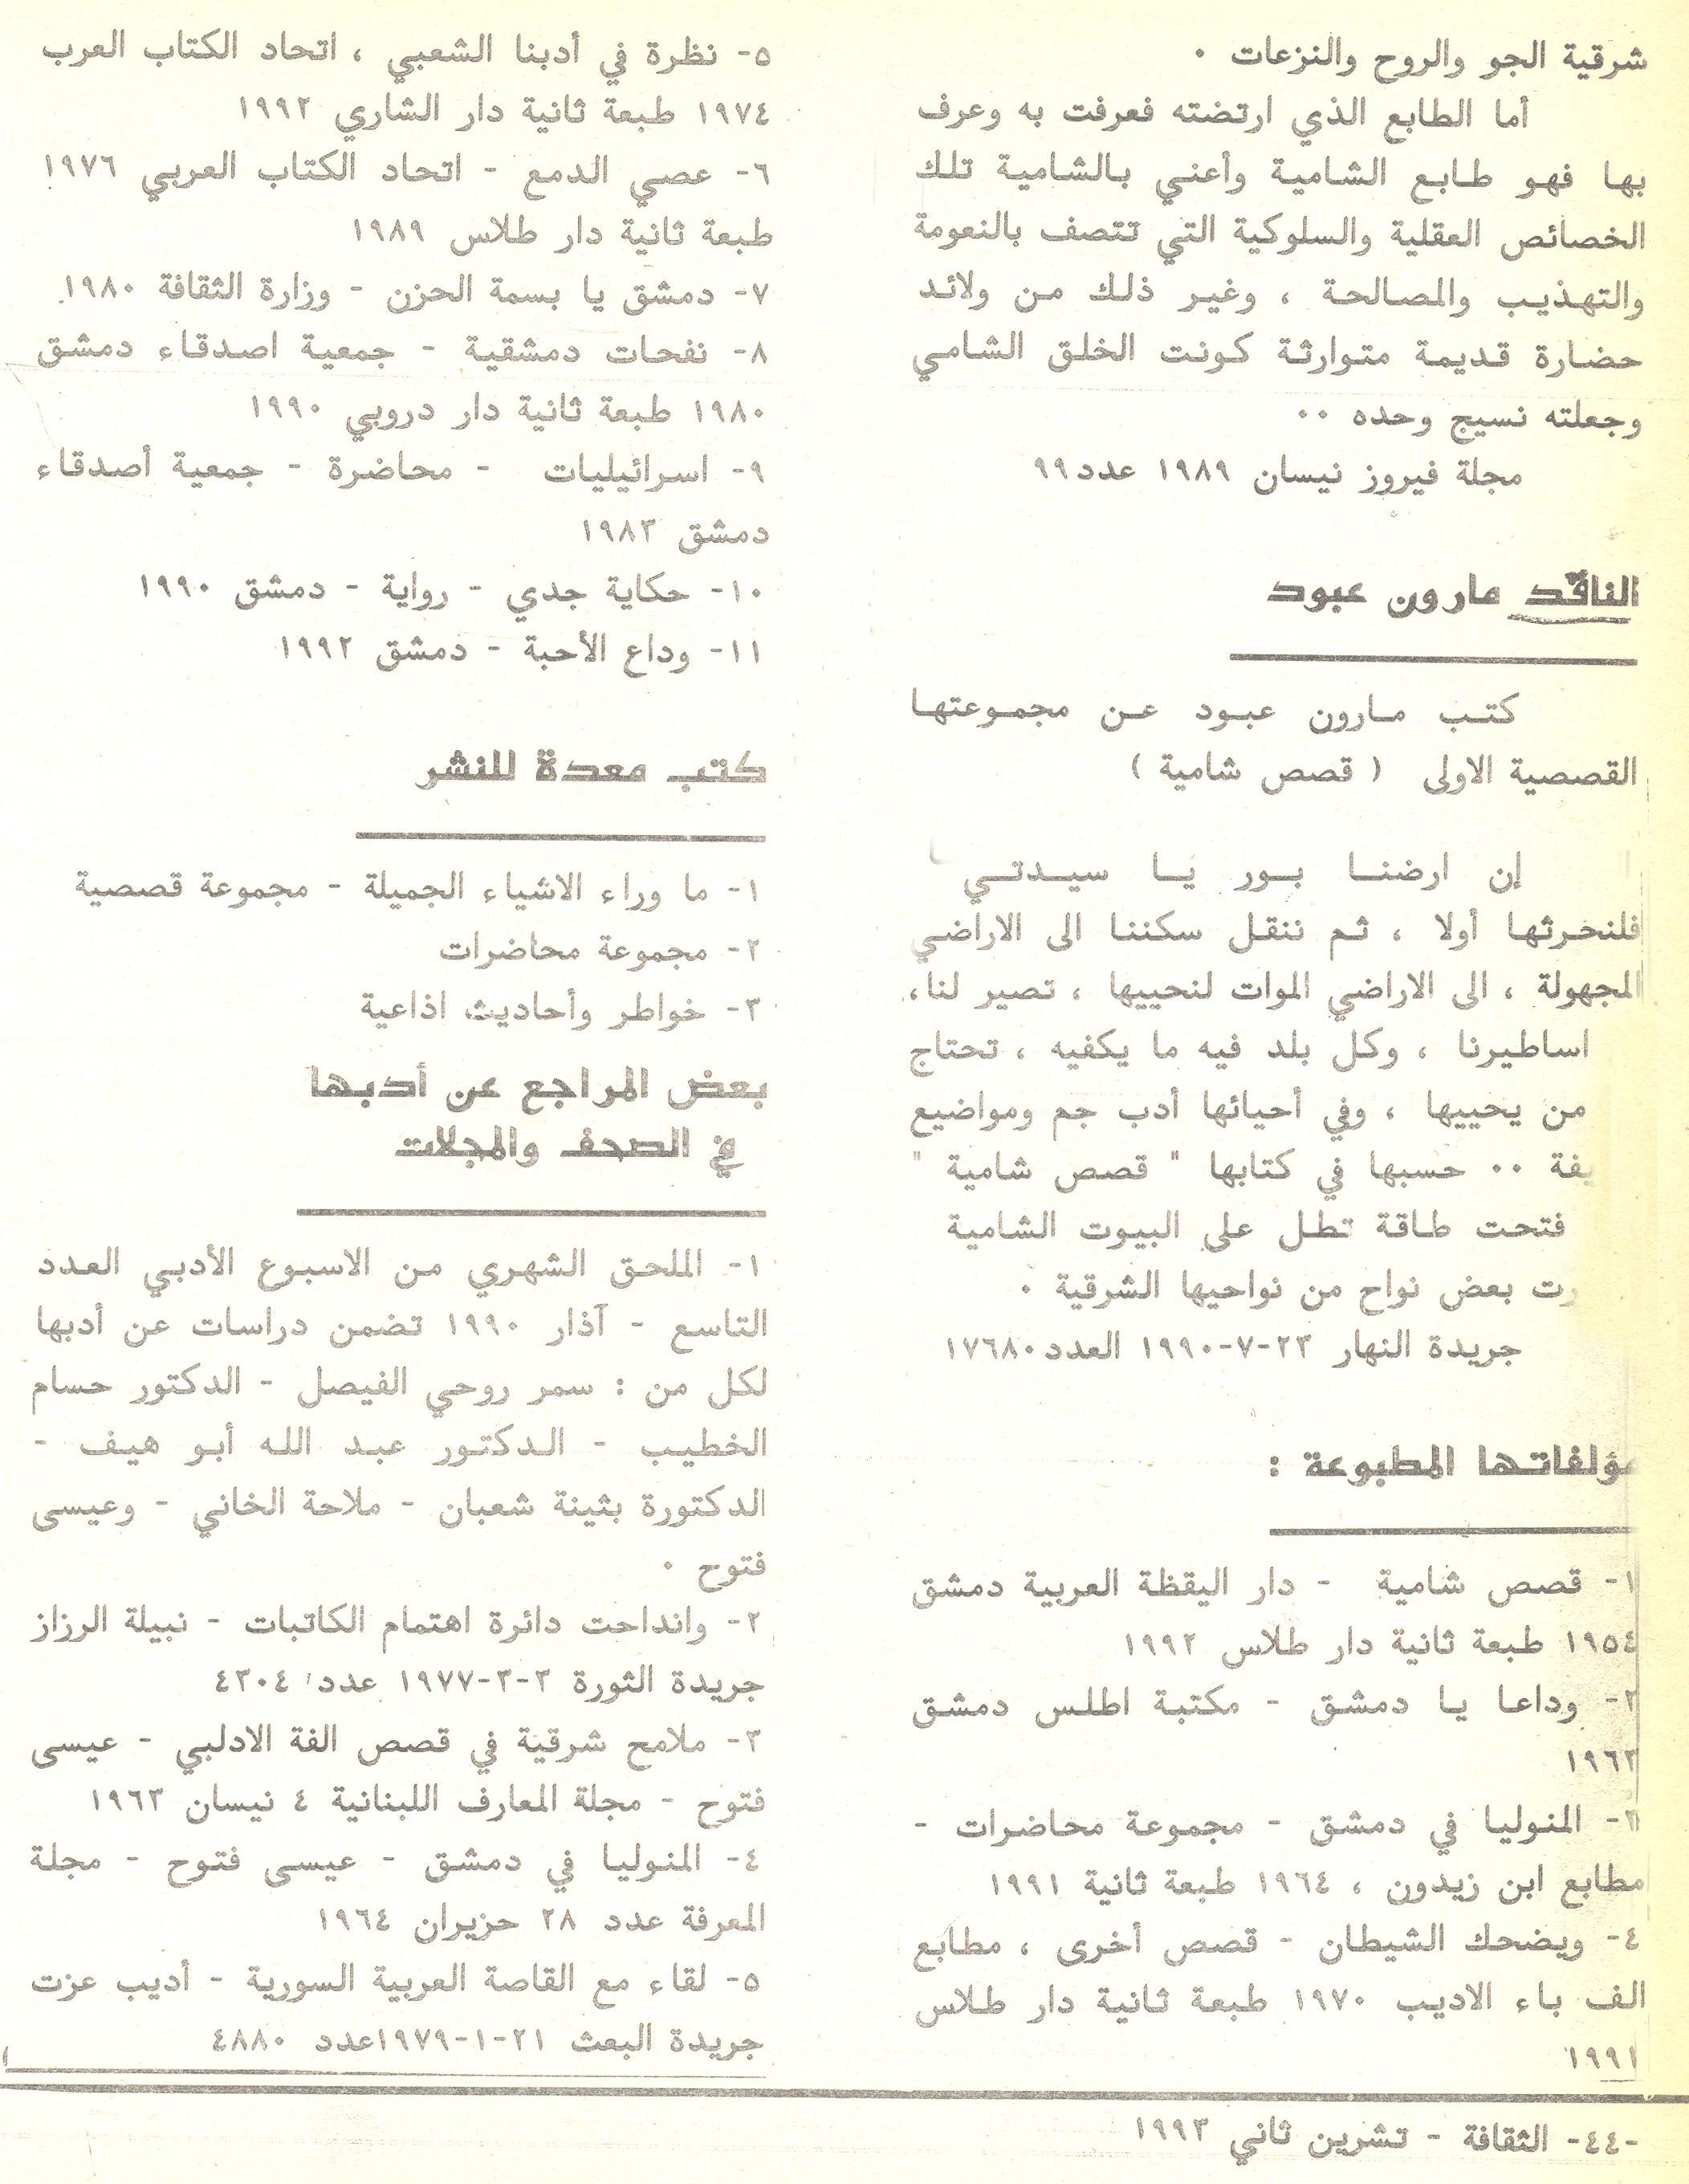 شرقية الجو والروح والنزعات ٠
أما الطابع الذي ارتضته فعرفت به وعرف
بها فهو طابع الشامية وأعني بالشامية تلك
الخصائص العقلية والسلوكية التي تتصف بالنعومة
والتهذيب والمصالحة ، وغير ذلك من ولائد
حضارة قديمة متوارثة كونت الخلق الشامي
وجعلته نسيج وحده ٠٠
مجلة فيروز نيسان ١٩٨٩ عدد ٩٩
الناقد مارون عبود
كتب مارون عبود عن مجموعتها
القصصية الاولى ( قصص شامية )
إن ارضنا بور يا سيدتي
فلنحرثها أولا ، ثم ننقل سكننا الى الاراضي
المجهولة ، الى الاراضي الموات لنحييها ، تصير لنا،
اساطيرنا ، وكل بلد فيه ما يكفيه ، تحتاج
من يحييها ، وفي أحيائها أدب جم ومواضيع
يفة ٠٠ حسبها في كتابها " قصص شامية "
فتحت طاقة تطل على البيوت الشامية
رت بعض نواح من نواحيها الشرقية ٠
جريدة النهار ٢٣-٧-١٩٩٠ العدد ١٧٦٨٠
مؤلفاتها المطبوعة :
١- قصص شامية - دار اليقظة العربية دمشق
١٩٥٤ طبعة ثانية دار طلاس ١٩٩٢
٢- وداعا يا دمشق - مكتبة اطلس دمشق
١٩٦٣
٣- المنوليا في دمشق - مجموعة محاضرات -
مطابع ابن زيدون ، ١٩٦٤ طبعة ثانية ١٩٩١
٤- ويضحك الشيطان - قصص أخرى ، مطابع
الف باء الاديب ١٩٧٠ طبعة ثانية دار طلاس
١٩٩١
٥- نظرة في أدبنا الشعبي ، اتحاد الكتاب العرب
١٩٧٤ طبعة ثانية دار الشاري ١٩٩٢
٦- عصي الدمع - اتحاد الكتاب العربي ١٩٧٦
طبعة ثانية دار طلاس ١٩٨٩
٧- دمشق يا بسمة الحزن - وزارة الثقافة ١٩٨٠
٨- نفحات دمشقية - جمعية اصدقاء دمشق
١٩٨٠ طبعة ثانية دار دروبي ١٩٩٠
٩- اسرائيليات - محاضرة - جمعية أصدقاء
دمشق ١٩٨٣
١٠- حكاية جدي - رواية - دمشق ١٩٩٠
١١- وداع الأحبة - دمشق ١٩٩٢
كتب معدة للنشر
١- ما وراء الاشياء الجميلة - مجموعة قصصية
٢- مجموعة محاضرات
٣- خواطر وأحاديث اذاعية
بعض المراجع عن أدبها
في الصحف والمجلات
١- الملحق الشهري من الاسبوع الأدبي العدد
التاسع - آذار ١٩٩٠ تضمن دراسات عن أدبها
لكل من : سمر روحي الفيصل - الدكتور حسام
الخطيب - الدكتور عبد الله أبو هيف -
الدكتورة بثينة شعبان - ملاحة الخاني - وعيسى
فتوح ٠
٢- وانداحت دائرة اهتمام الكاتبات - نبيلة الرزاز
جريدة الثورة ٣-٣-١٩٧٧ عدد ٤٣٠٤
٣- ملامح شرقية في قصص الفة الادلبي - عيسى
فتوح - مجلة المعارف اللبنانية ٤ نيسان ١٩٦٣
٤- المنوليا في دمشق - عيسى فتوح - مجلة
المعرفة عدد ٢٨ حزيران ١٩٦٤
٥- لقاء مع القاصة العربية السورية - أديب عزت
جريدة البعث ٢١-١-١٩٧٩عدد ٤٨٨٠
-٤٤- الثقافة - تشرين ثاني ١٩٩٣